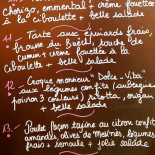 chorizo, emmental + crème fouettée
à la ciboulette + belle salade
11. Tarte aux épinards frais,
brousse du Rove, touche de
cumin + crème fouettée à la
ciboulette + belle salade
12. Croque monsieur "Dolce Vita"
aux légumes confits (aubergines
poivron 3 couleurs), feta, origan
+ belle salade
13. Poulet façon tajine au citron confit
amandes, olives de Mesnières, légumes
frais + semoule + jolie salade